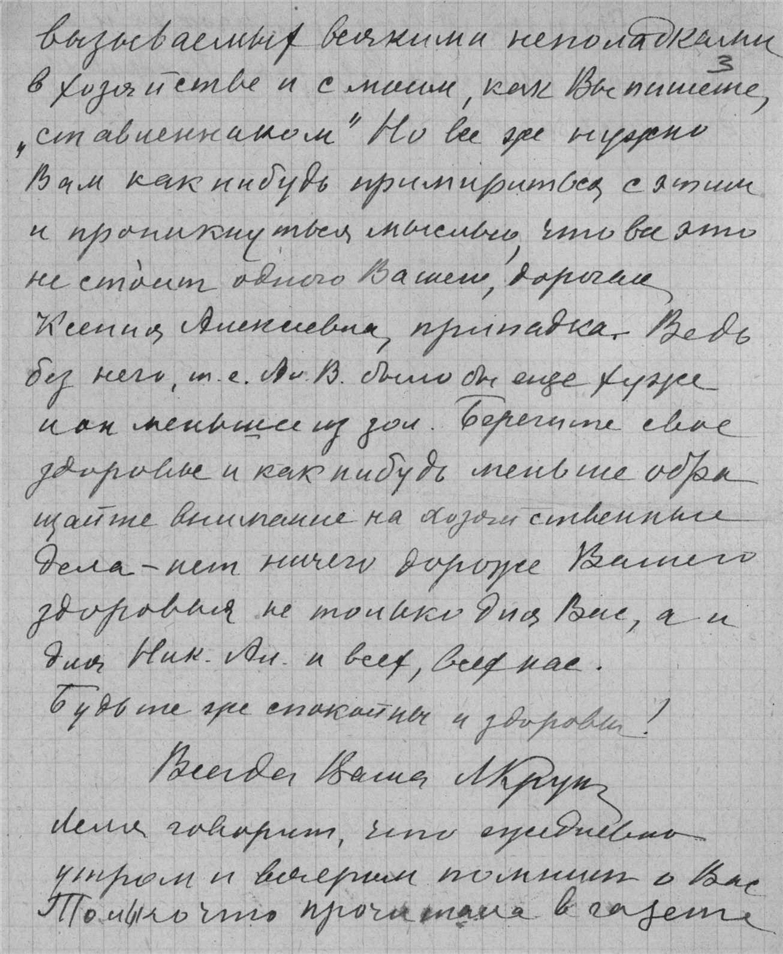 вызываемых всякими неполадками
3
в хозяйстве и с моим, как Вы пишете,
„ставленником" Но все же нужно
Вам как нибудь примириться с этим
и проникнуться мыслью, что все это
не стоит одного Вашего, дорогая
Ксения Алексеевна, припадка. Ведь
без него, т.е. Ал. В. было бы еще хуже
и он меньшее из зол. Берегите свое
здоровье и как нибудь меньше обра
щайте внимание на хозяйственные
дела – нет ничего дороже Вашего
здоровья не только для Вас, а и
для Ник. Ал. и всех, всех нас.
Будьте же спокойны и здоровы!
Всегда Ваша
говорит, что ежедневно
утром и вечером помнит о Вас
Только что прочитала в газете